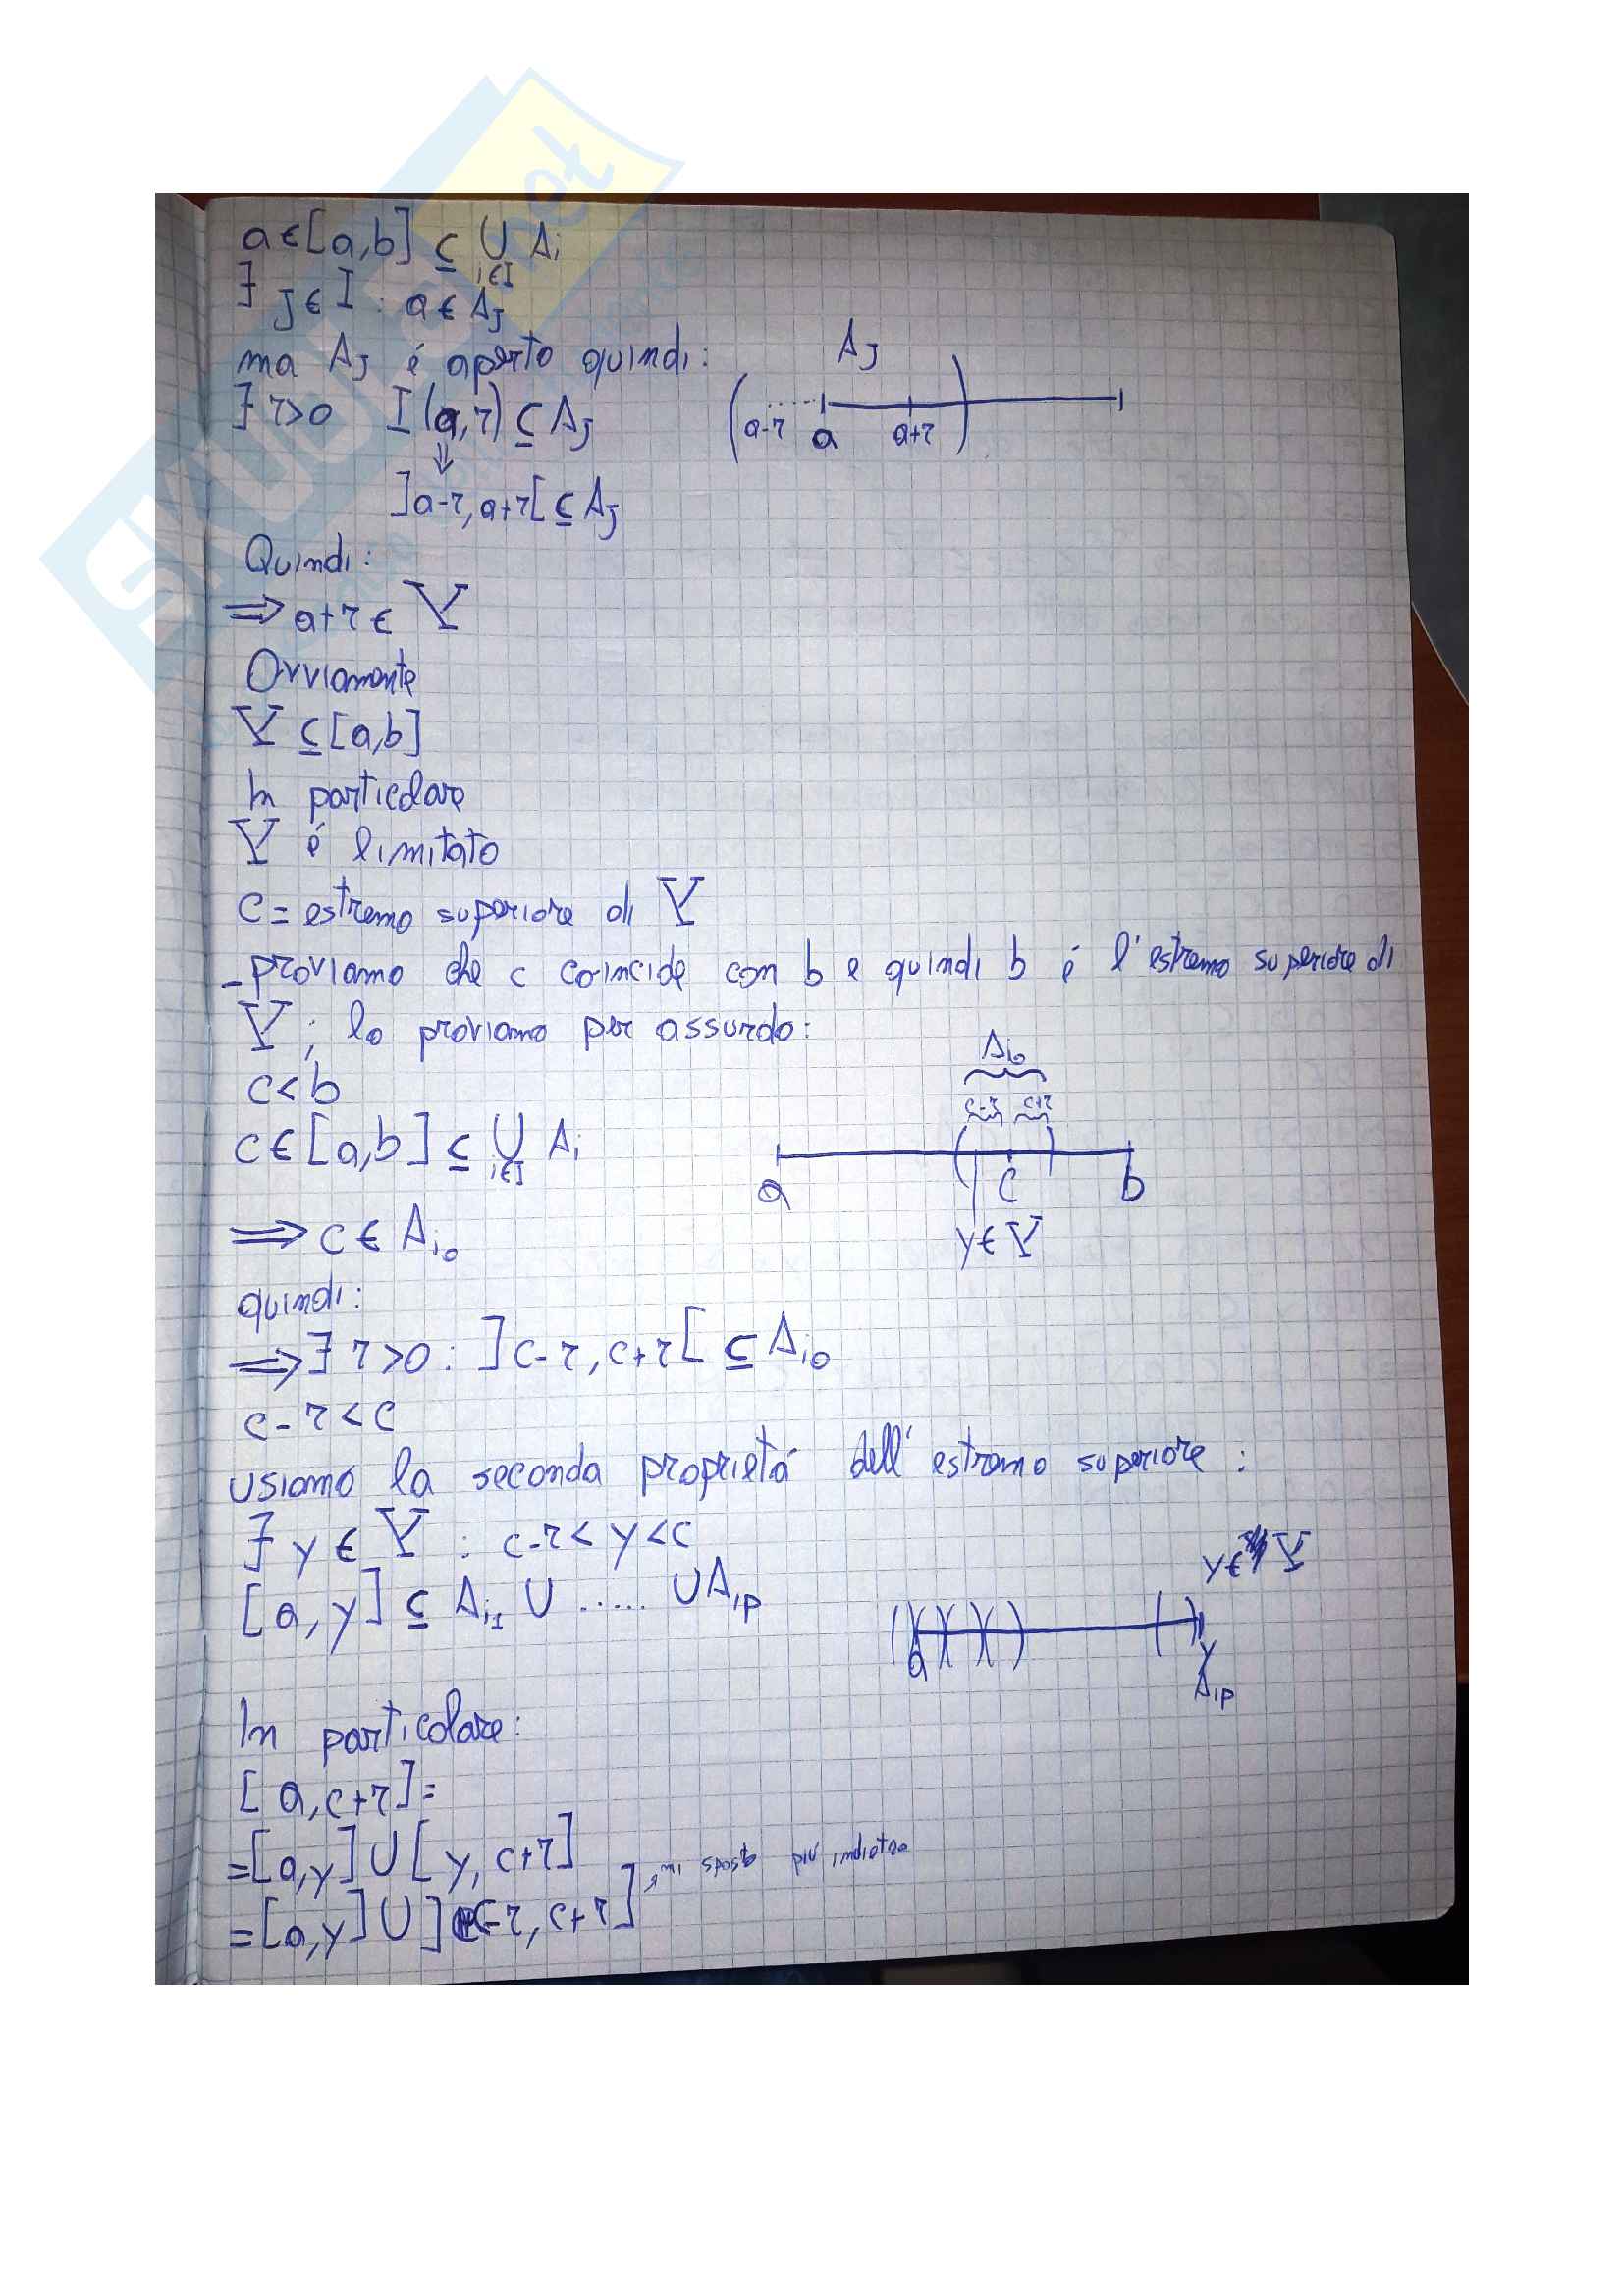 a ∈ [a,b] ⊆ ⋃ Aᵢ
i∈I
∃ J ∈ I : a ∈ A_J
ma A_J é aperto quindi:
A_J
∃ r>0 I(a,r) ⊆ A_J
a-r a a+r
⇓
]a-r, a+r[ ⊆ A_J
Quindi:
⟹ a+r ∈ Y
Ovviamente
Y ⊆ [a,b]
In particolare
Y é limitato
c = estremo superiore di Y
- proviamo che c coincide con b e quindi b é l'estremo superiore di
Y ; lo proviamo per assurdo:
c < b
A_i0
c-r c+r
c ∈ [a,b] ⊆ ⋃ Aᵢ
i∈I
a c b
⟹ c ∈ A_i0
y ∈ Y
quindi:
⟹ ∃ r>0 : ]c-r, c+r[ ⊆ A_i0
c-r < c
usiamo la seconda proprietá dell'estremo superiore :
∃ y ∈ Y : c-r < y < c
y ∈ Y
[a,y] ⊆ A_i1 ∪ ..... ∪ A_ip
a y
A_ip
In particolare:
[a, c+r] =
= [a,y] ∪ [y, c+r]
= [a,y] ∪ ]c-r, c+r] → mi sposto piú indietro